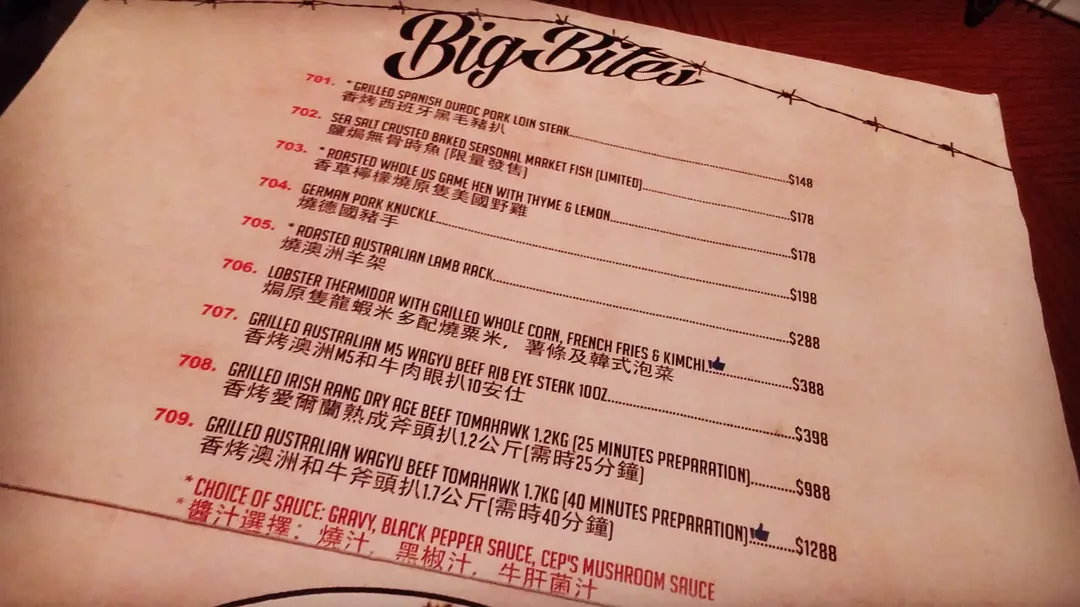 Big Bites
701. * GRILLED SPANISH DUROC PORK LOIN STEAK........$148
香烤西班牙黑毛豬扒
702. SEA SALT CRUSTED BAKED SEASONAL MARKET FISH (LIMITED)........$178
鹽焗無骨時魚 (限量發售)
703. * ROASTED WHOLE US GAME HEN WITH THYME & LEMON........$178
香草檸檬燒原隻美國野雞
704. GERMAN PORK KNUCKLE........$198
燒德國豬手
705. * ROASTED AUSTRALIAN LAMB RACK........$288
燒澳洲羊架
706. LOBSTER THERMIDOR WITH GRILLED WHOLE CORN, FRENCH FRIES & KIMCHI........$388
焗原隻龍蝦米多配燒粟米，薯條及韓式泡菜
707. GRILLED AUSTRALIAN M5 WAGYU BEEF RIB EYE STEAK 10OZ........$398
香烤澳洲M5和牛肉眼扒10安仕
708. GRILLED IRISH RANG DRY AGE BEEF TOMAHAWK 1.2KG (25 MINUTES PREPARATION)........$988
香烤愛爾蘭熟成斧頭扒1.2公斤(需時25分鐘)
709. GRILLED AUSTRALIAN WAGYU BEEF TOMAHAWK 1.7KG (40 MINUTES PREPARATION)........$1288
香烤澳洲和牛斧頭扒1.7公斤(需時40分鐘)
* CHOICE OF SAUCE: GRAVY, BLACK PEPPER SAUCE, CEP'S MUSHROOM SAUCE
* 醬汁選擇：燒汁，黑椒汁，牛肝菌汁